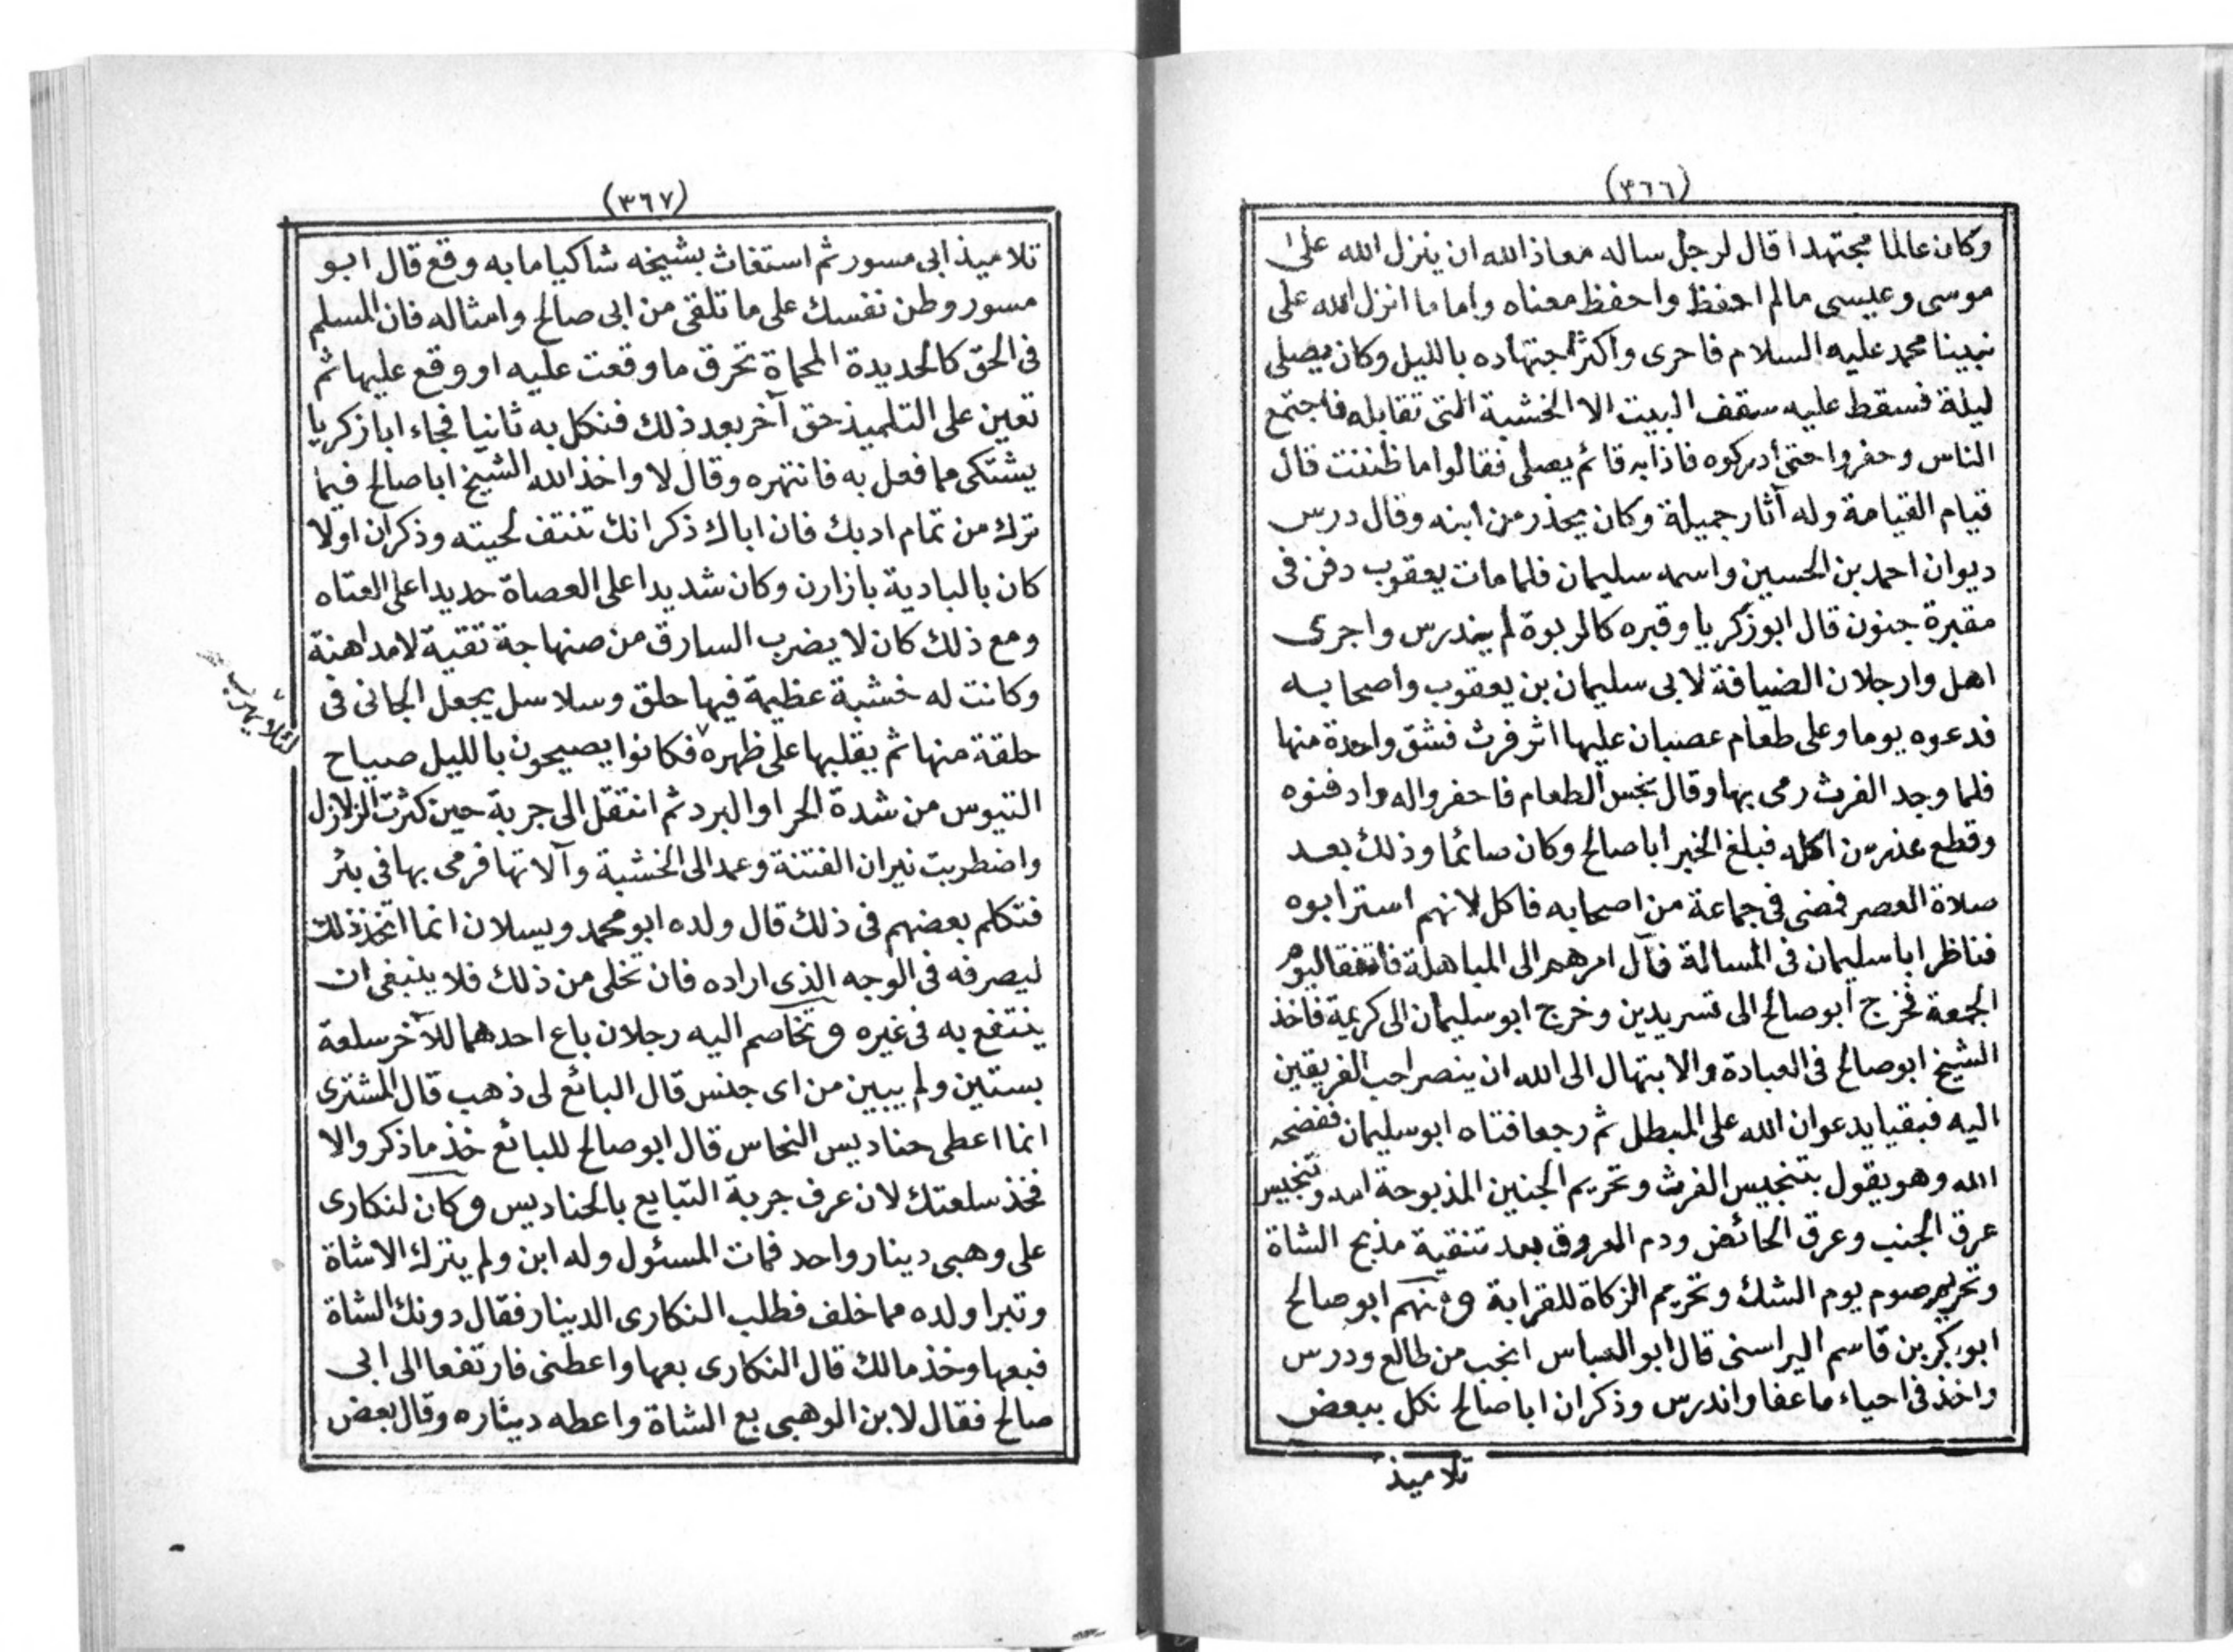 (٣٦٦)
وكان عالما مجتهدا قال لرجل ساله معاذ الله ان ينزل الله على
موسى وعيسى مالم احفظ واحفظ معناه واما ما انزل الله على
نبينا محمد عليه السلام فاحرى واكثر اجتهاده بالليل وكان يصلى
ليلة فسقط عليه سقف البيت الا الخشبة التى تقابله فاجتمع
الناس وحفروا حتى أدركوه فاذا به قائم يصلى فقالوا ما ظننت قال
قيام القيامة وله آثار جميلة وكان يحذر من ابنه وقال درس
ديوان احمد بن الحسين واسمه سليمان فلما مات يعقوب دفن فى
مقبرة جنون قال ابو زكريا وقبره كالربوة لم يندرس واجرى
اهل وارجلان الضيافة لابى سليمان بن يعقوب واصحابه
فدعوه يوما وعلى طعام عصبان عليها اثر فرث فشق واحدة منها
فلما وجد الفرث رمى بها وقال نجس الطعام فاحفروا له وادفنوه
وقطع عذر من اكله فبلغ الخبر أبا صالح وكان صائما وذلك بعد
صلاة العصر فمضى فى جماعة من اصحابه فاكل لانهم استرابوه
فناظر ابا سليمان فى المسالة فآل امرهم الى المباهلة فاتفقا ليوم
الجمعة فخرج أبو صالح الى تسريدين وخرج ابو سليمان الى كريمة فاخذ
الشيخ ابو صالح فى العبادة والابتهال الى الله ان ينصر احب الفريقين
اليه فبقيا يدعوان الله على المبطل ثم رجعا فتاه ابو سليمان ففضحه
الله وهو يقول بتنجيس الفرث وتحريم الجنين المذبوحة امه وتنجيس
عرق الجنب وعرق الحائض ودم العروق بعد تنقية مذبح الشاة
وتحريم صوم يوم الشك وتحريم الزكاة للقرابة ومنهم ابو صالح
ابو بكر بن قاسم اليراسنى قال ابو العباس انجب من طالع ودرس
واخذ فى احياء ما عفا واندرس وذكر ان ابا صالح نكل ببعض
تلاميذ
(٣٦٧)
تلاميذ ابى مسور ثم استغاث بشيخه شاكيا ما به وقع قال ابو
مسور وطن نفسك على ما تلقى من ابى صالح وامثاله فان المسلم
فى الحق كالحديدة المحماة تحرق ما وقعت عليه او وقع عليها ثم
تعين على التلميذ حق آخر بعد ذلك فنكل به ثانيا فجاء ابا زكريا
يشتكى مما فعل به فانتهره وقال لا واخذ الله الشيخ ابا صالح فيما
ترك من تمام ادبك فان اباك ذكر انك تنتف لحيته وذكر ان اولا
كان بالبادية بازارن وكان شديدا على العصاة حديدا على العتاه
ومع ذلك كان لا يضرب السارق من صنهاجة تقية لا مداهنة
وكانت له خشبة عظيمة فيها حلق وسلاسل يجعل الجانى فى
حلقة منها ثم يقلبها على ظهره فكانوا يصيحون بالليل صياح
لئلا يهرب
التيوس من شدة الحر او البرد ثم انتقل الى جربة حين كثرت الزلازل
واضطربت نيران الفتنة وعمد الى الخشبة وآلاتها فرمى بها فى بئر
فتكلم بعضهم فى ذلك قال ولده ابو محمد ويسلان انما اتخذ ذلك
ليصرفه فى الوجه الذى اراده فان تخلى من ذلك فلا ينبغى ان
ينتفع به فى غيره وتخاصم اليه رجلان باع احدهما للآخر سلعة
بستين ولم يبين من اى جنس قال البائع لى ذهب قال المشترى
انما اعطى حناديس النحاس قال ابو صالح للبائع خذ ما ذكر والا
فخذ سلعتك لان عرف جربة التبايع بالحناديس وكان لنكارى
على وهبى دينار واحد فمات المسئول وله ابن ولم يترك الا شاة
وتبرا ولده مما خلف فطلب النكارى الدينار فقال دونك الشاة
فبعها وخذ مالك قال النكارى بعها واعطنى فارتفعا الى ابى
صالح فقال لابن الوهبى بع الشاة واعطه ديناره وقال بعض